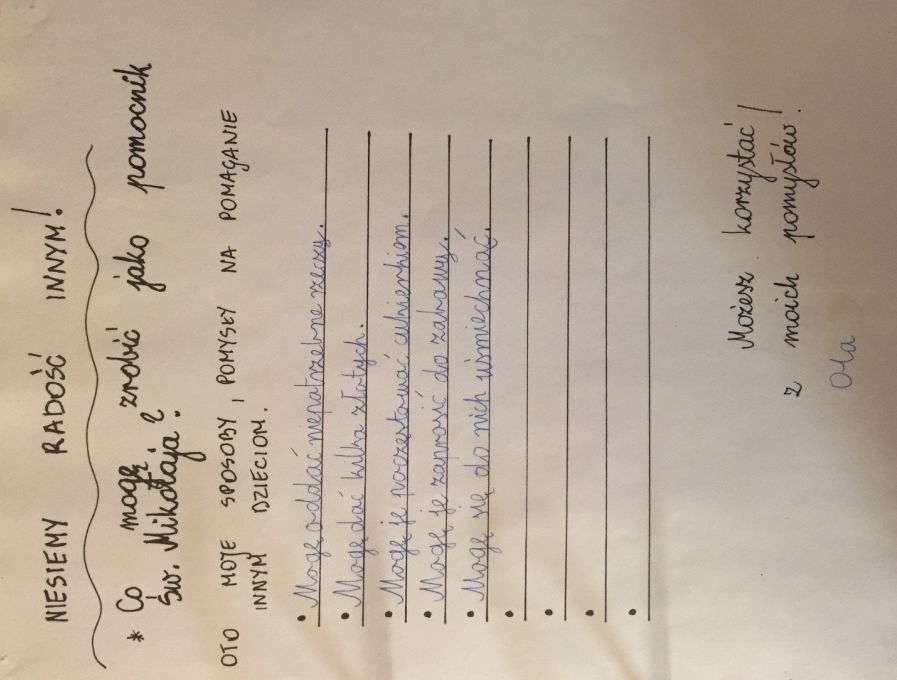 NIESIEMY RADOŚĆ INNYM!
* Co mogę zrobić jako pomocnik
Św. Mikołaja?
OTO MOJE SPOSOBY, POMYSŁY NA POMAGANIE
INNYM DZIECIOM.
• Mogę oddać niepotrzebne rzeczy.
• Mogę dać kilka złotych.
• Mogę je poczęstować cukierkiem.
• Mogę je zaprosić do zabawy.
• Mogę się do nich uśmiechnąć.
•
•
•
•
Możesz korzystać
z moich pomysłów!
Ola